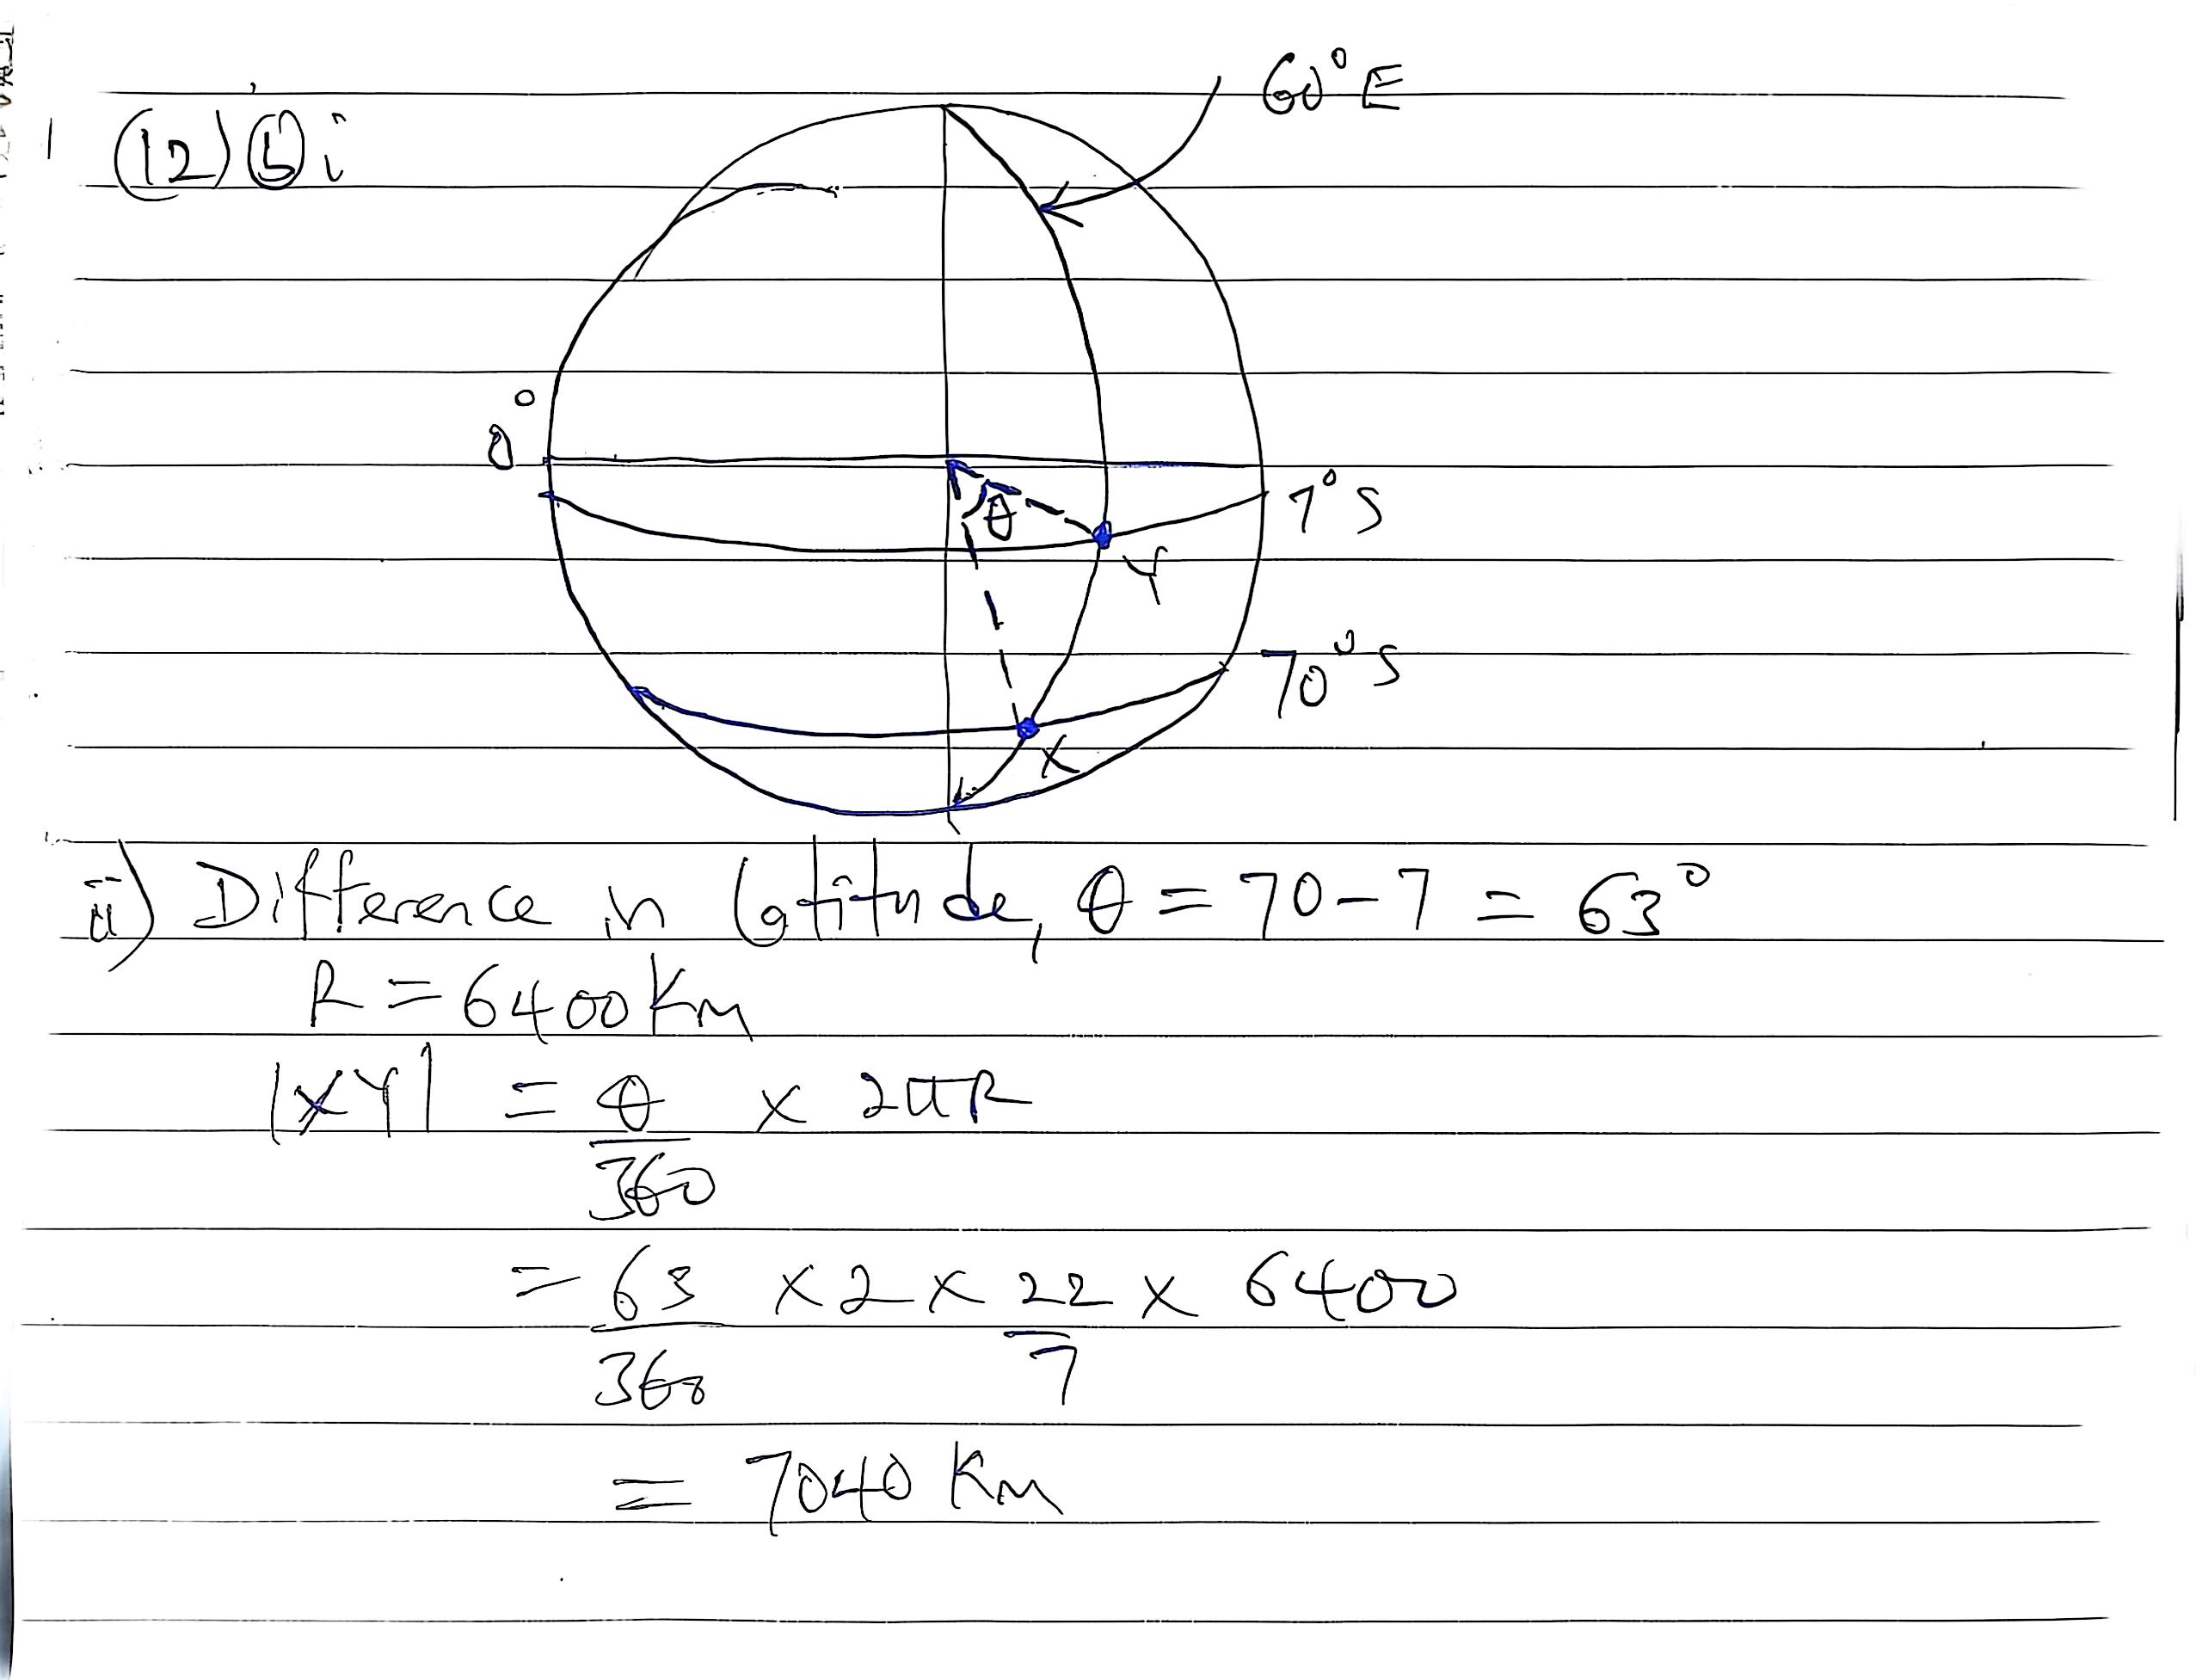 (12) (b) i
60° E
0°
θ
7° S
Y
70° S
X
ii) Difference in latitude, θ = 70 - 7 = 63°
R = 6400 Km
|XY| = θ/360 × 2πR
= 63/360 × 2 × 22/7 × 6400
= 7040 Km